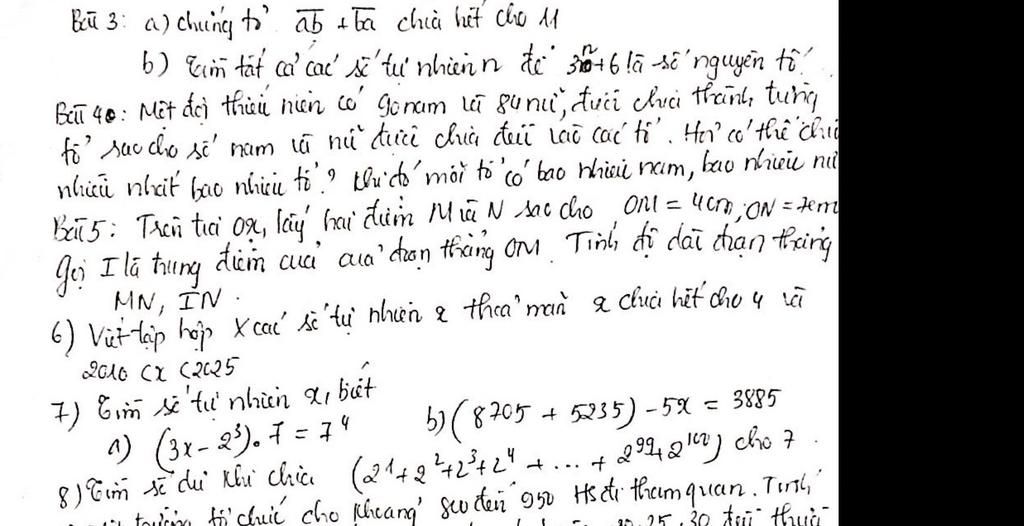 Bài 3: a) Chứng tỏ ab + ba chia hết cho 11
b) Tìm tất cả các số tự nhiên n để 3ⁿ+6 là số nguyên tố
Bài 4: Một đội thiếu niên có 90 nam và 84 nữ, được chia thành từng
tổ sao cho số nam và nữ được chia đều vào các tổ. Hỏi có thể chia
nhiều nhất bao nhiêu tổ? Khi đó mỗi tổ có bao nhiêu nam, bao nhiêu nữ
Bài 5: Trên tia Ox, lấy hai điểm M và N sao cho OM = 4cm; ON = 7cm
gọi I là trung điểm của của đoạn thẳng OM. Tính độ dài đoạn thẳng
MN, IN.
6) Viết tập hợp X các số tự nhiên x thoả mãn x chia hết cho 4 và
2010 < x < 2025
7) Tìm số tự nhiên x, biết
a) (3x - 2³).7 = 7⁴ b) (8705 + 5235) - 5x = 3885
8) Tìm số dư khi chia (2¹+2²+2³+2⁴ + ... + 2⁹⁹+2¹⁰⁰) cho 7.
tổ chức cho khoảng 800 đến 950 Hs đi tham quan. Tính
25, 30 đều